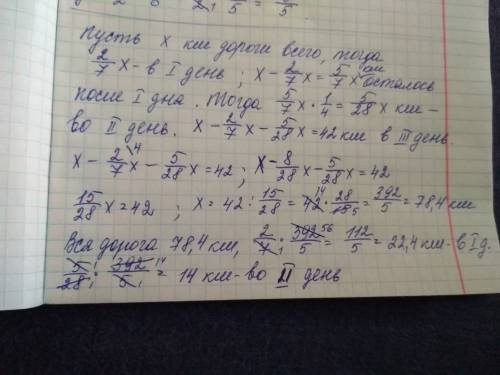 Пусть х км дороги всего, тогда
2/7 х - в I день ; х - 2/7 х = 5/7 х км осталось
после I дня. Тогда 5/7 х · 1/4 = 5/28 х км -
во II день. х - 2/7 х - 5/28 х = 42 км в III день.
х - 2/7 \4 х - 5/28 х = 42 ; х - 8/28 х - 5/28 х = 42
15/28 х = 42 ; х = 42 : 15/28 = 42 14 · 28/15 5 = 392/5 = 78,4 км
Вся дорога 78,4 км, 2/7 1 · 392 56/5 = 112/5 = 22,4 км - в I д.
5 1/28 1 · 392 14/5 1 = 14 км - во II день